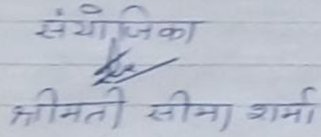 संयोजिका
श्रीमती सीमा शर्मा